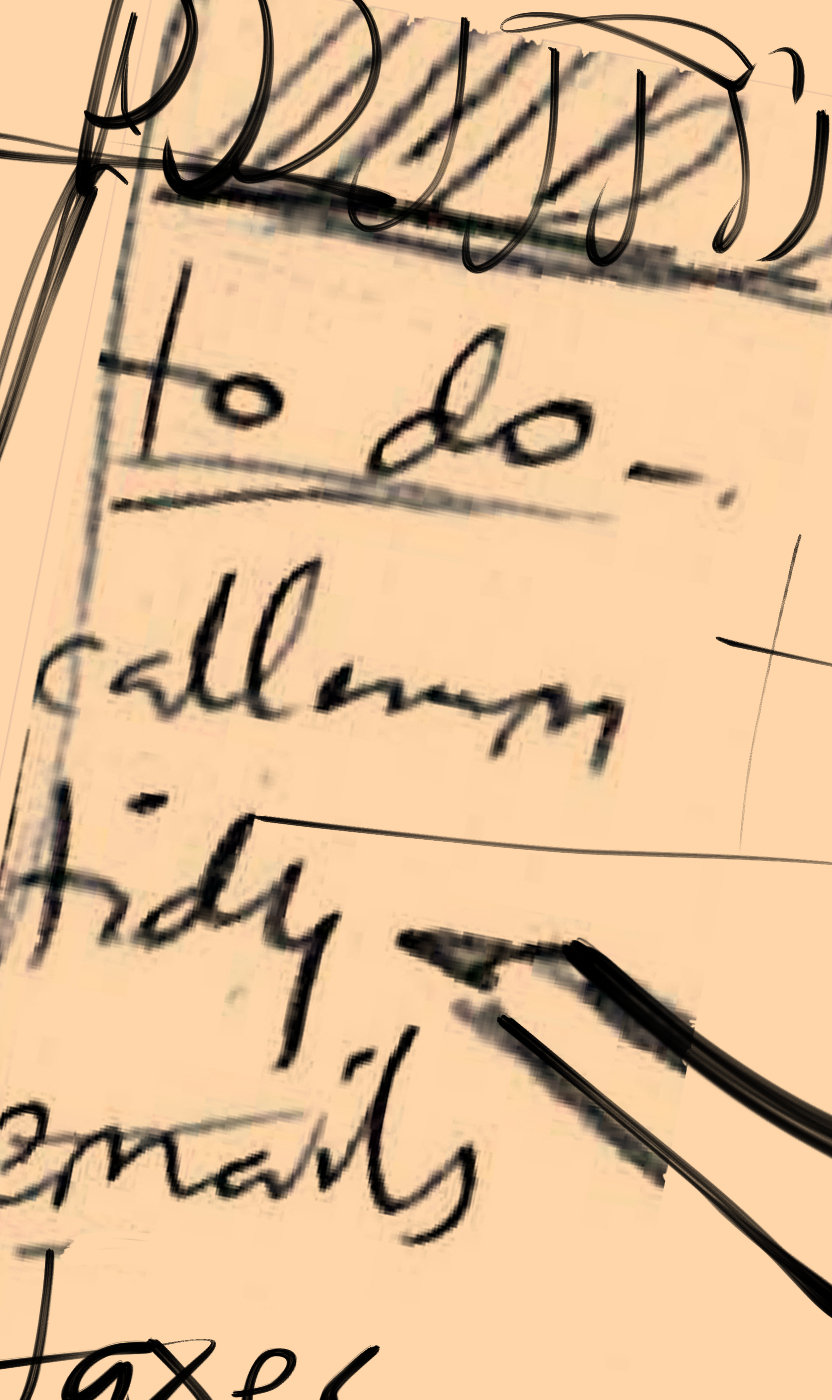 to do -.
call mum
tidy
emails
taxes